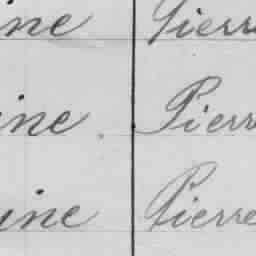 ine Pierre
ine Pierr
ine Pierre